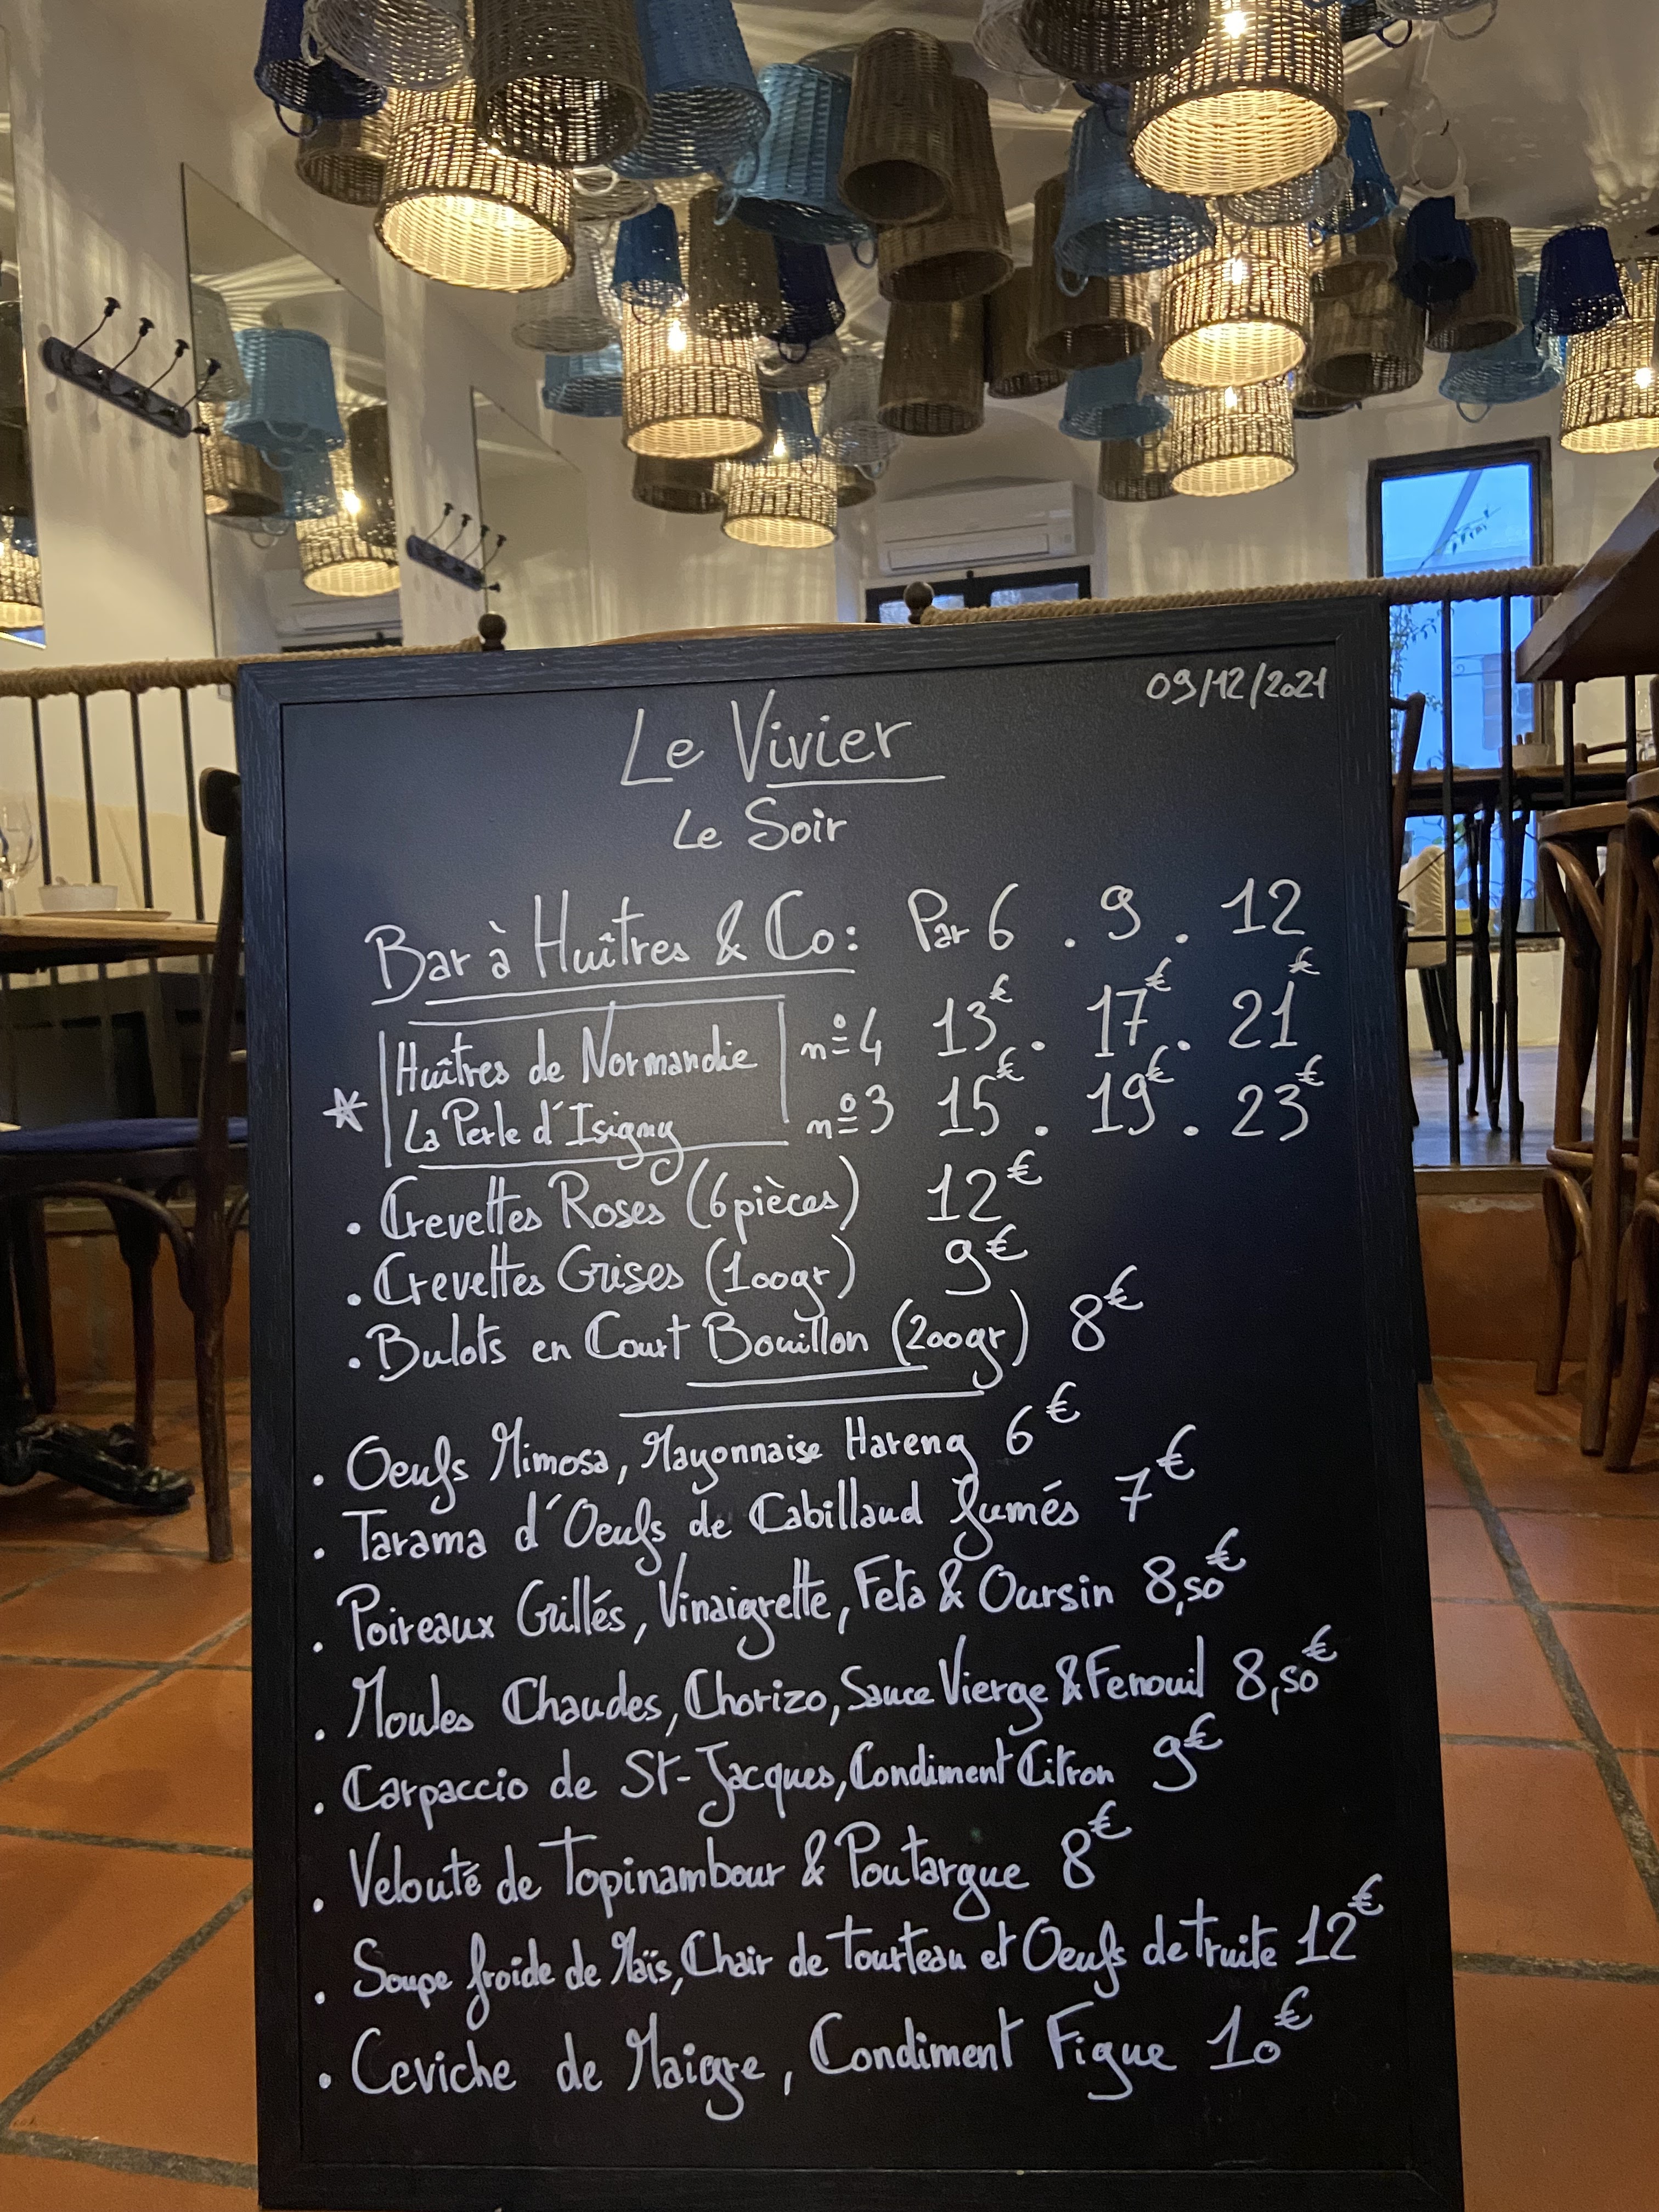 09/12/2021
Le Vivier
Le Soir
Bar à Huîtres & Co: Par 6 . 9 . 12
Huîtres de Normandie nº4 13€ . 17€ . 21€
* La Perle d'Isigny nº3 15€ . 19€ . 23€
. Crevettes Roses (6 pièces) 12€
. Crevettes Grises (100gr) 9€
. Bulots en Court Bouillon (200gr) 8€
. Oeufs Mimosa, Mayonnaise Hareng 6€
. Tarama d'Oeufs de Cabillaud fumés 7€
. Poireaux Grillés, Vinaigrette, Feta & Oursin 8,50€
. Moules Chaudes, Chorizo, Sauce Vierge & Fenouil 8,50€
. Carpaccio de St-Jacques, Condiment Citron 9€
. Velouté de Topinambour & Poutargue 8€
. Soupe froide de Maïs, Chair de Tourteau et Oeufs de truite 12€
. Ceviche de Maigre, Condiment Figue 10€